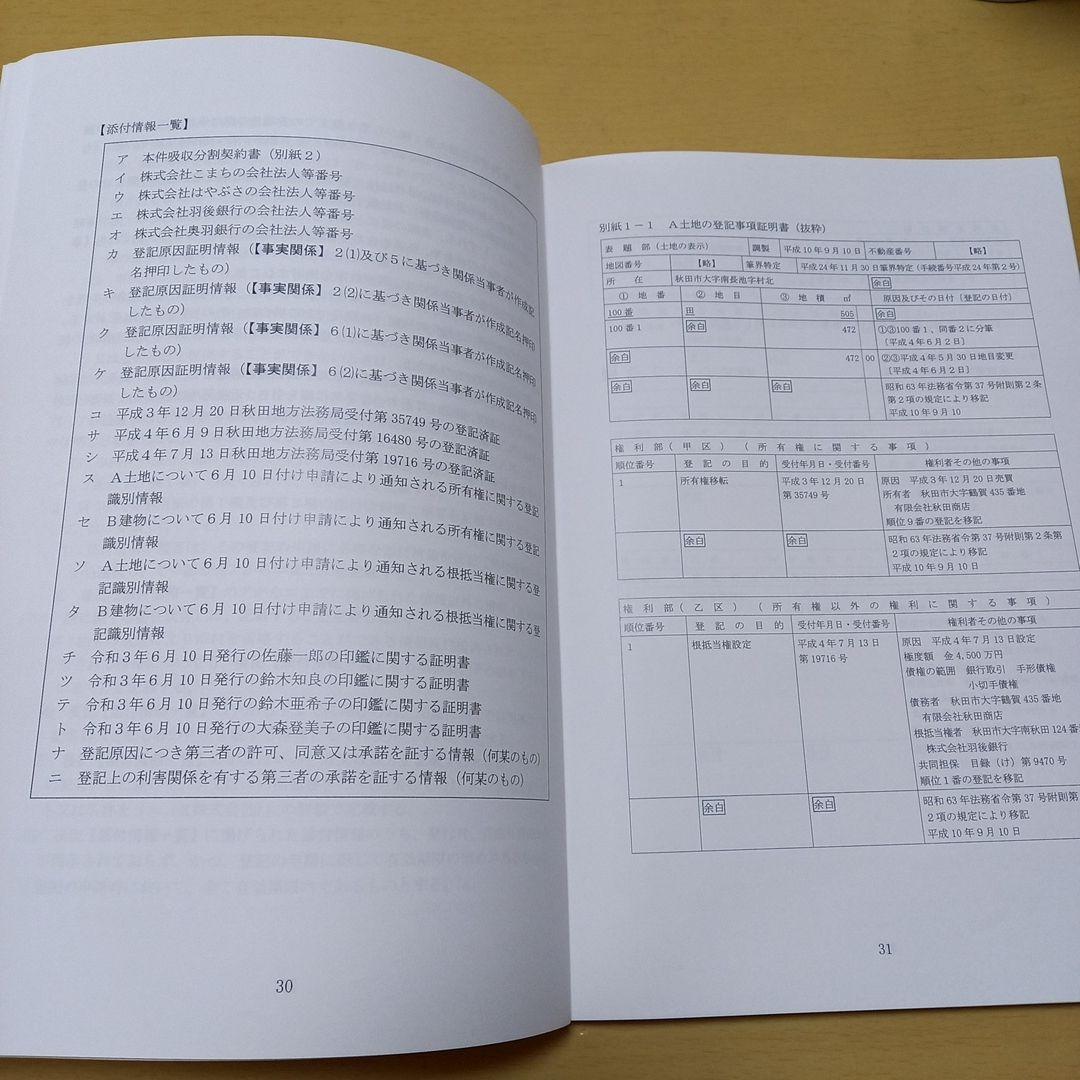 【添付情報一覧】
ア 本件吸収分割契約書(別紙2)
イ 株式会社こまちの会社法人等番号
ウ 株式会社はやぶさの会社法人等番号
エ 株式会社羽後銀行の会社法人等番号
オ 株式会社奥羽銀行の会社法人等番号
カ 登記原因証明情報(【事実関係】2(1)及び5に基づき関係当事者が作成記
名押印したもの)
キ 登記原因証明情報(【事実関係】2(2)に基づき関係当事者が作成記名押印
したもの)
ク 登記原因証明情報(【事実関係】6(1)に基づき関係当事者が作成記名押印
したもの)
ケ 登記原因証明情報(【事実関係】6(2)に基づき関係当事者が作成記名押印
したもの)
コ 平成3年12月20日秋田地方法務局受付第35749号の登記済証
サ 平成4年6月9日秋田地方法務局受付第16480号の登記済証
シ 平成4年7月13日秋田地方法務局受付第19716号の登記済証
ス A土地について6月10日付け申請により通知される所有権に関する登記
識別情報
セ B建物について6月10日付け申請により通知される所有権に関する登記
識別情報
ソ A土地について6月10日付け申請により通知される根抵当権に関する登
記識別情報
タ B建物について6月10日付け申請により通知される根抵当権に関する登
記識別情報
チ 令和3年6月10日発行の佐藤一郎の印鑑に関する証明書
ツ 令和3年6月10日発行の鈴木知良の印鑑に関する証明書
テ 令和3年6月10日発行の鈴木亜希子の印鑑に関する証明書
ト 令和3年6月10日発行の大森登美子の印鑑に関する証明書
ナ 登記原因につき第三者の許可、同意又は承諾を証する情報(何某のもの)
ニ 登記上の利害関係を有する第三者の承諾を証する情報(何某のもの)
30
別紙1-1 A土地の登記事項証明書(抜粋)
表題部(土地の表示) 調製 平成10年9月10日 不動産番号 【略】
地図番号 【略】 筆界特定 平成24年11月30日筆界特定(手続番号平成24年第2号)
所在 秋田市大字南長池字村北 余白
①地番 ②地目 ③地積 ㎡ 原因及びその日付〔登記の日付〕
100番 田 505 余白
100番1 余白 472 ①③100番1、同番2に分筆
〔平成4年6月2日〕
余白 472 00 ②③平成4年5月30日地目変更
〔平成4年6月2日〕
余白 余白 余白 昭和63年法務省令第37号附則第2条
第2項の規定により移記
平成10年9月10
権利部(甲区)(所有権に関する事項)
順位番号 登記の目的 受付年月日・受付番号 権利者その他の事項
1 所有権移転 平成3年12月20日 原因 平成3年12月20日売買
第35749号 所有者 秋田市大字鶴賀435番地
有限会社秋田商店
順位9番の登記を移記
余白 余白 昭和63年法務省令第37号附則第2条
第2項の規定により移記
平成10年9月10日
権利部(乙区)(所有権以外の権利に関する事項)
順位番号 登記の目的 受付年月日・受付番号 権利者その他の事項
1 根抵当権設定 平成4年7月13日 原因 平成4年7月13日設定
第19716号 極度額 金4,500万円
債権の範囲 銀行取引 手形債権
小切手債権
債務者 秋田市大字鶴賀435番地
有限会社秋田商店
根抵当権者 秋田市大字南秋田124番
株式会社羽後銀行
共同担保 目録(け)第9470号
順位1番の登記を移記
余白 余白 昭和63年法務省令第37号附則第
2項の規定により移記
平成10年9月10日
31